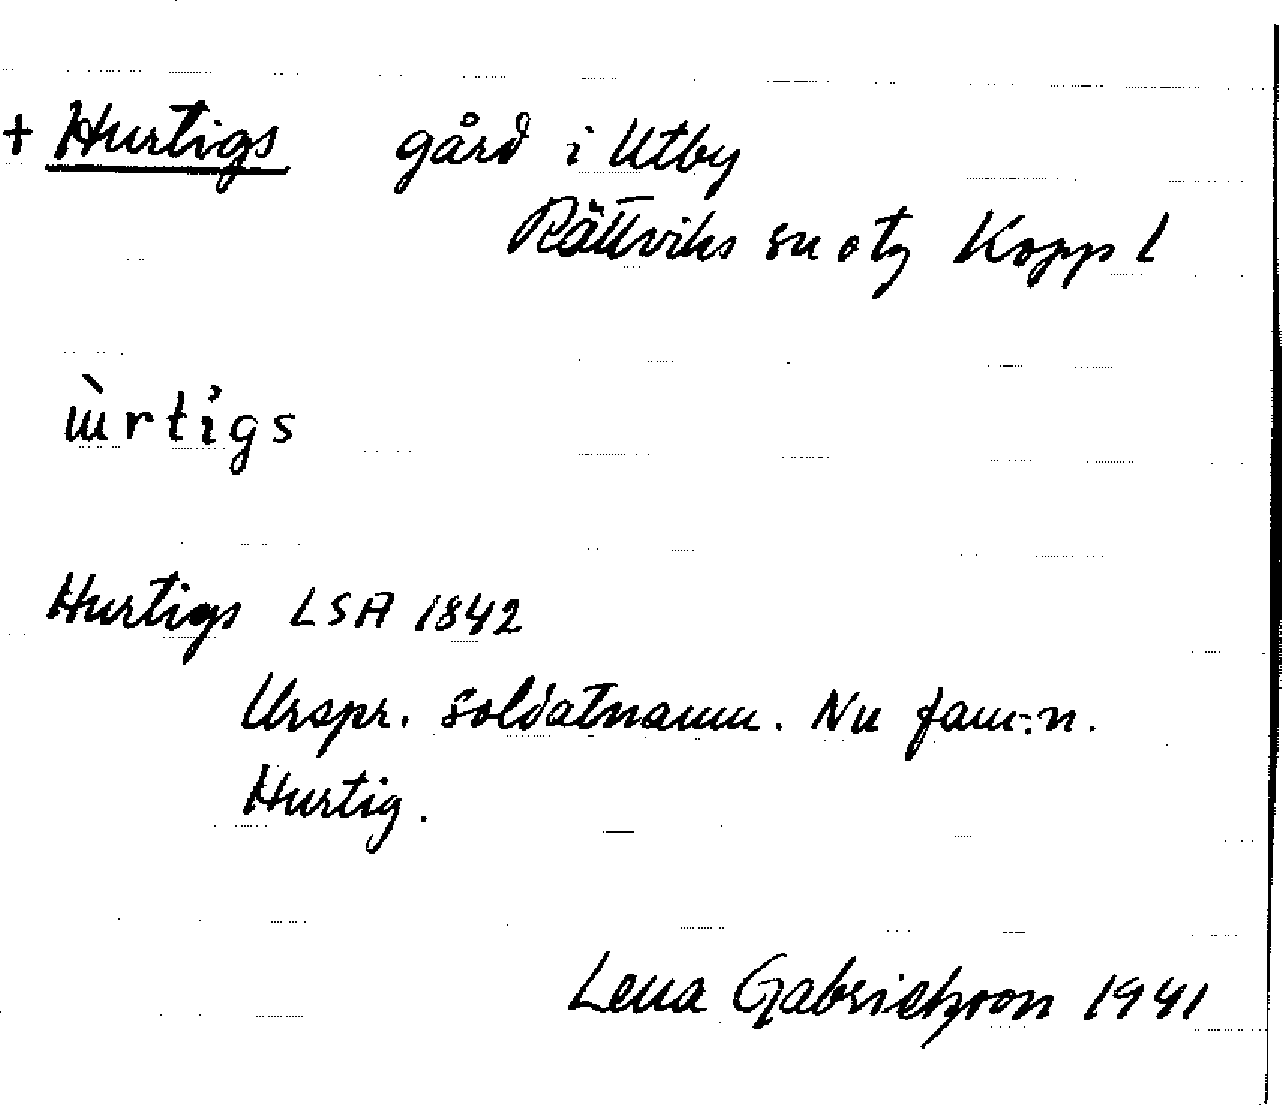 + Hurtigs gård i Utby
Rättviks sn o tg Kopp l
ɯ̀rtigs
Hurtigs LSA 1842
Urspr. soldatnamn. Nu fam:n.
Hurtig.
Lena Gabrielsson 1941